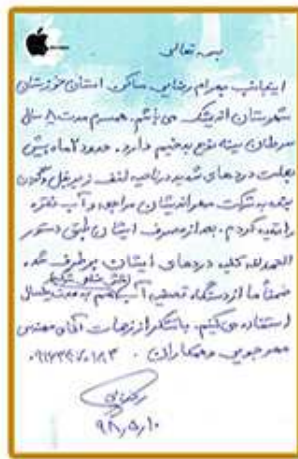 بسمه تعالی
اینجانب بهرام رضایی ساکن استان خوزستان
شهرستان اندیمشک می باشم. همسرم مدت ۸ سال
سرطان سینه نوع بدخیم دارد. حدود ۲ ماه پیش
بعلت دردهای شدید در ناحیه لنف زیر بغل و گردن
بنده به شرکت مهراندیشان مراجعه و آب نقره
را تهیه کردم. بعد از مصرف ایشان طبق دستور
الحمدلله کلیه دردهای ایشان برطرف شد.
ضمناً ما از دستگاه تصفیه آب هم به مدت یکسال
استفاده می کنیم. باتشکر از زحمات آقای مهندس
مهرجویی و همکاران.
رضایی
۹۸,۵,۱۰